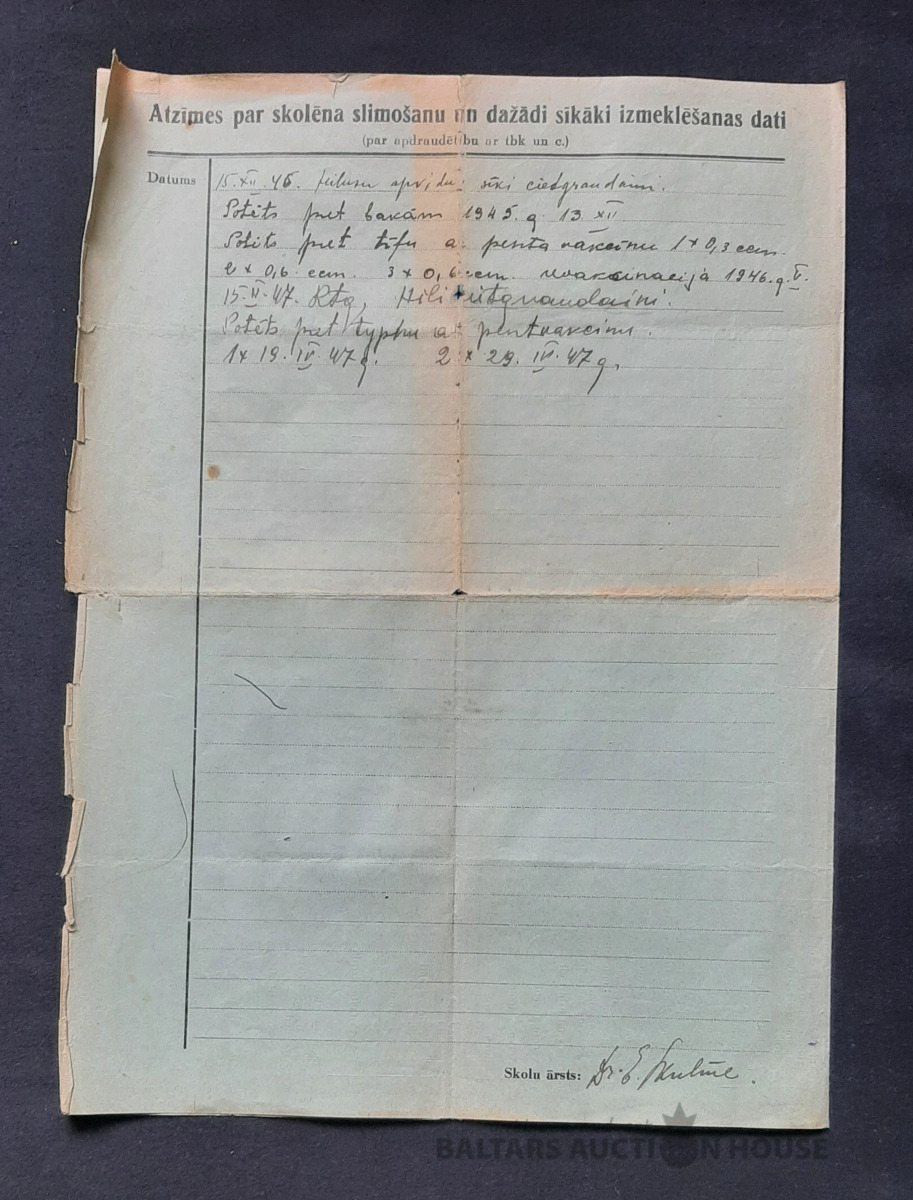 Atzīmes par skolēna slimošanu un dažādi sīkāki izmeklēšanas dati
(par apdraudētību ar tbk un c.)
Datums
15. XII. 45. apvidū sīki cietgraudaini.
Potēts pret bakām 1945. g. 13 XII
Potēts pret tīfu ar penta vakcinu 1 x 0,3 ccm.
2 x 0,6 ccm. 3 x 0,6 ccm. revakcinacija 1946. g. V.
15. II. 47. Rtg. Hili
Potēts pret typhu ar pentvakcinu.
1 x 19. IV. 47 g. 2 x 29. IV. 47 g.
Skolu ārsts: Dr. E.
BALTARS AUCTION HOUSE